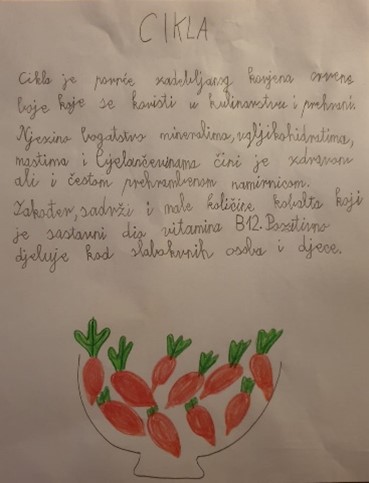 CIKLA
Cikla je povrće zadebljanog korjena crvene
boje koje se koristi u kulinarstvu i prehrani.
Njezino bogatstvo mineralima, ugljikohidratima,
mastima i bjelančevinama čini je zdravom
ali i čestom prehrambenom namirnicom.
Također, sadrži i male količine kobalta koji
je sastavni dio vitamina B12. Pozitivno
djeluje kod slabokrvnih osoba i djece.